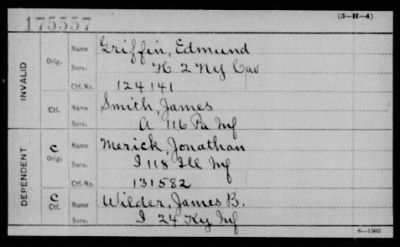 175557
(3—H—4)
INVALID
Orig. Name Griffin, Edmund
Serv. K 2 Ny Cav
Ctf. No. 124141
Ctf. Name Smith, James
Serv. A 116 Pa Inf
DEPENDENT
C Orig. Name Merick, Jonathan
Serv. I 118 Ill Inf
Ctf. No. 131582
C Ctf. Name Wilder, James B.
Serv. I 24 Ky Inf